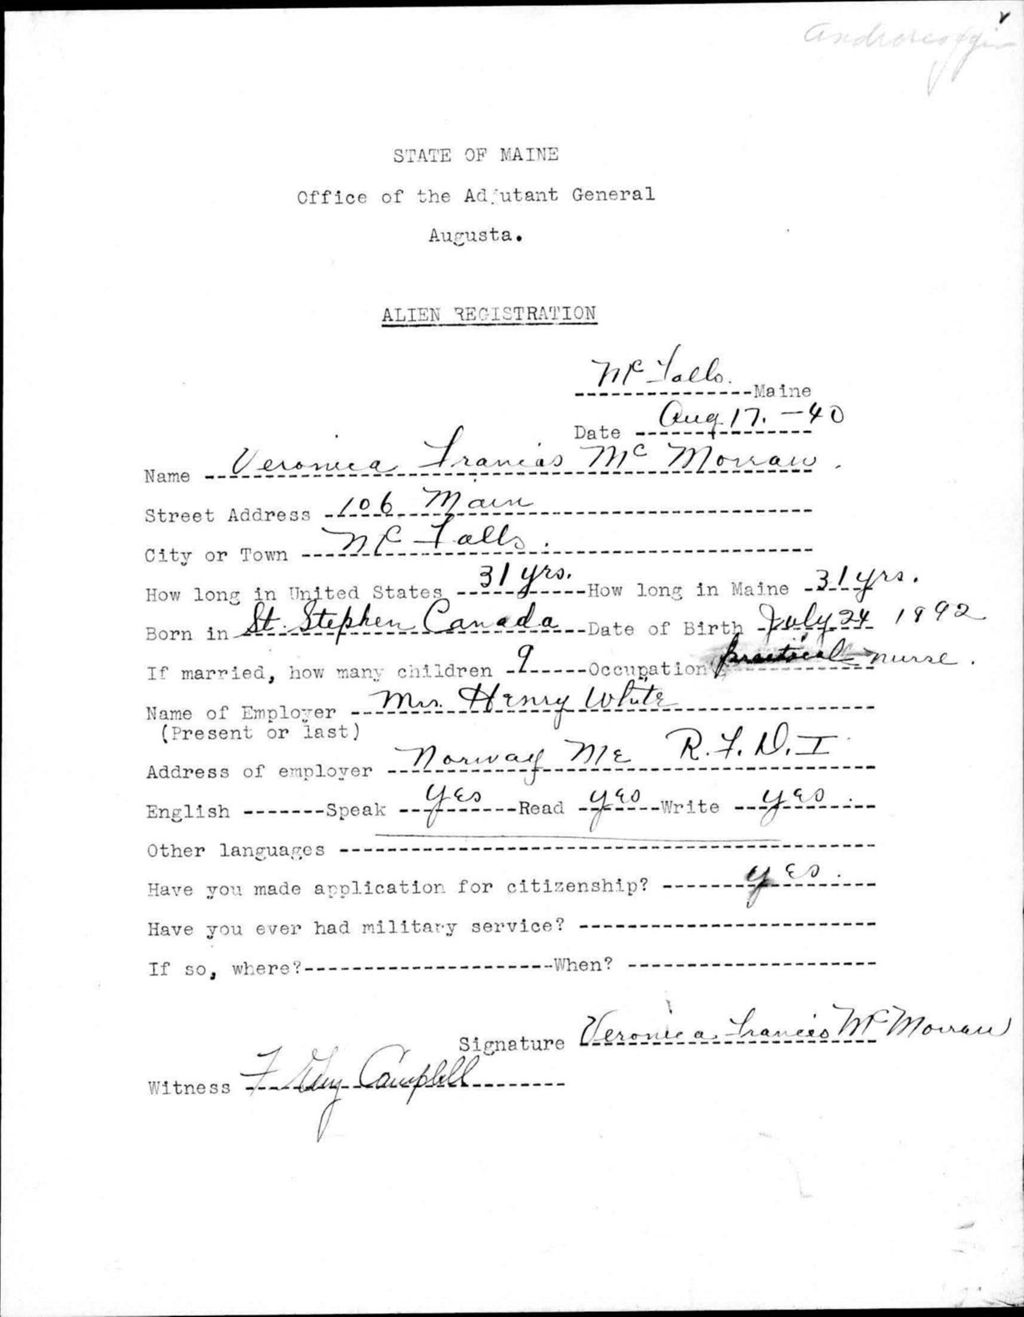 Androscoggin
STATE OF MAINE
Office of the Adjutant General
Augusta.
ALIEN REGISTRATION
Mc Falls. Maine
Date Aug 17. - 40
Name Veronica Francis Mc Morraw.
Street Address 106 Main
City or Town Mc Falls.
How long in United States 31 yrs. How long in Maine 31 yrs.
Born in St. Stephen Canada Date of Birth July 24 1892
If married, how many children 9 Occupation practical nurse.
Name of Employer Mrs. Henry White
(Present or last)
Address of employer Norway Me R.F.D. I
English Speak yes Read yes Write yes.
Other languages
Have you made application for citizenship? yes.
Have you ever had military service?
If so, where? When?
Signature Veronica Francis Mc Morraw
Witness F Guy Campbell